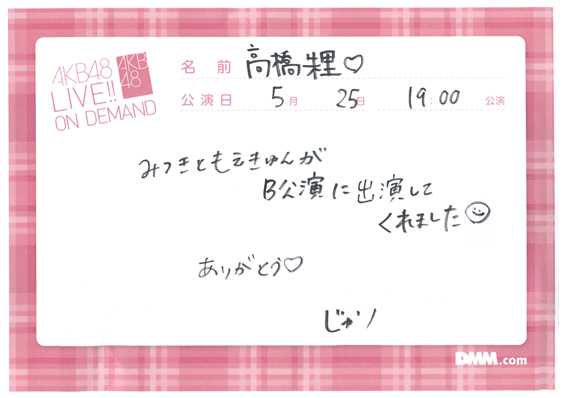 AKB48
LIVE!!
ON DEMAND
AKB
48
名 前 高橋朱里♡
公演日 5月 25日 19:00 公演
みつきともえきゅんが
B公演に出演して
くれました
ありがとう♡
じゅり
DMM.com